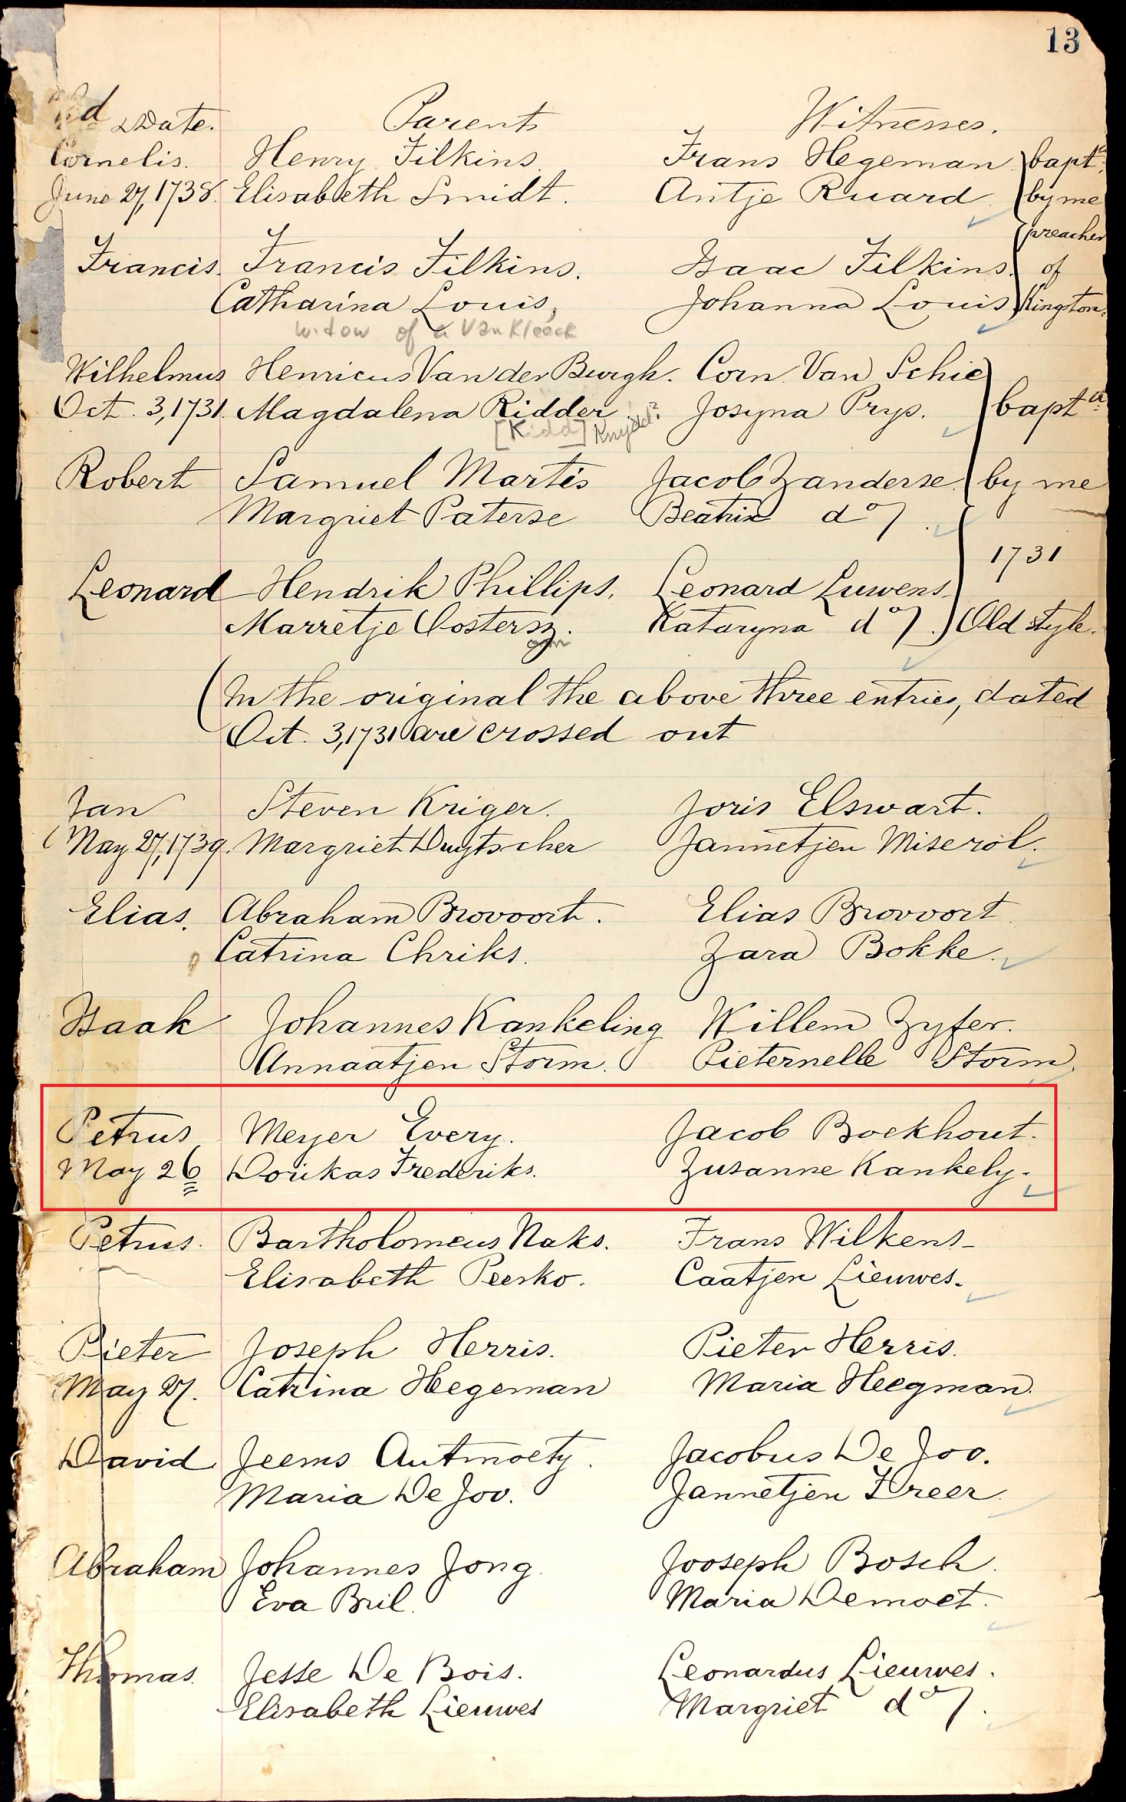 13
& Date. Parents Witnesses.
Cornelis. Henry Filkins. Frans Hegeman bapt.
June 27, 1738. Elisabeth Smidt. Antje Ruard by me
preacher
Francis. Francis Filkins. Isaac Filkins. of
Catharina Louis, Johanna Louis Kingston.
widow of a Van Kleeck
Wilhelmus Henricus Van der Burgh. Corn. Van Schie
Oct. 3, 1731. Magdalena Ridder Josyna Prys. bapt.
[Kidd]
Robert Samuel Martis Jacob Zanderse. by me
Margriet Paterse Beatrix do
1731
Leonard Hendrik Phillips. Leonard Luwens
Marretje Oostersz. Kataryna do. Old style.
(In the original the above three entries, dated
Oct. 3, 1731 are crossed out
Jan Steven Kriger. Joris Elswart.
May 27, 1739. Margriet Duytscher Jannetjen Miserol.
Elias. Abraham Brovoort. Elias Brovoort
Catrina Chriks. Zara Bokke.
Isaak Johannes Kankeling Willem Zyfer.
Annaatjen Storm. Pieternelle Storm.
Petrus Meyer Every. Jacob Bockhout.
May 26 Dorikas Frederiks. Zusanne Kankely.
Petrus. Bartholomeus Naks. Frans Wilkens
Elisabeth Peerko. Caatjen Lieuwes.
Pieter Joseph Herris. Pieter Herris.
May 27. Catrina Hegeman Maria Heegman.
David Jeems Autmoety. Jacobus De Joo.
Maria De Joo. Jannetjen Freer.
Abraham Johannes Jong. Jooseph Bosch.
Eva Bril. Maria Demoet.
Thomas. Jesse De Bois. Leonardus Lieuwes.
Elisabeth Lieuwes Margriet do.